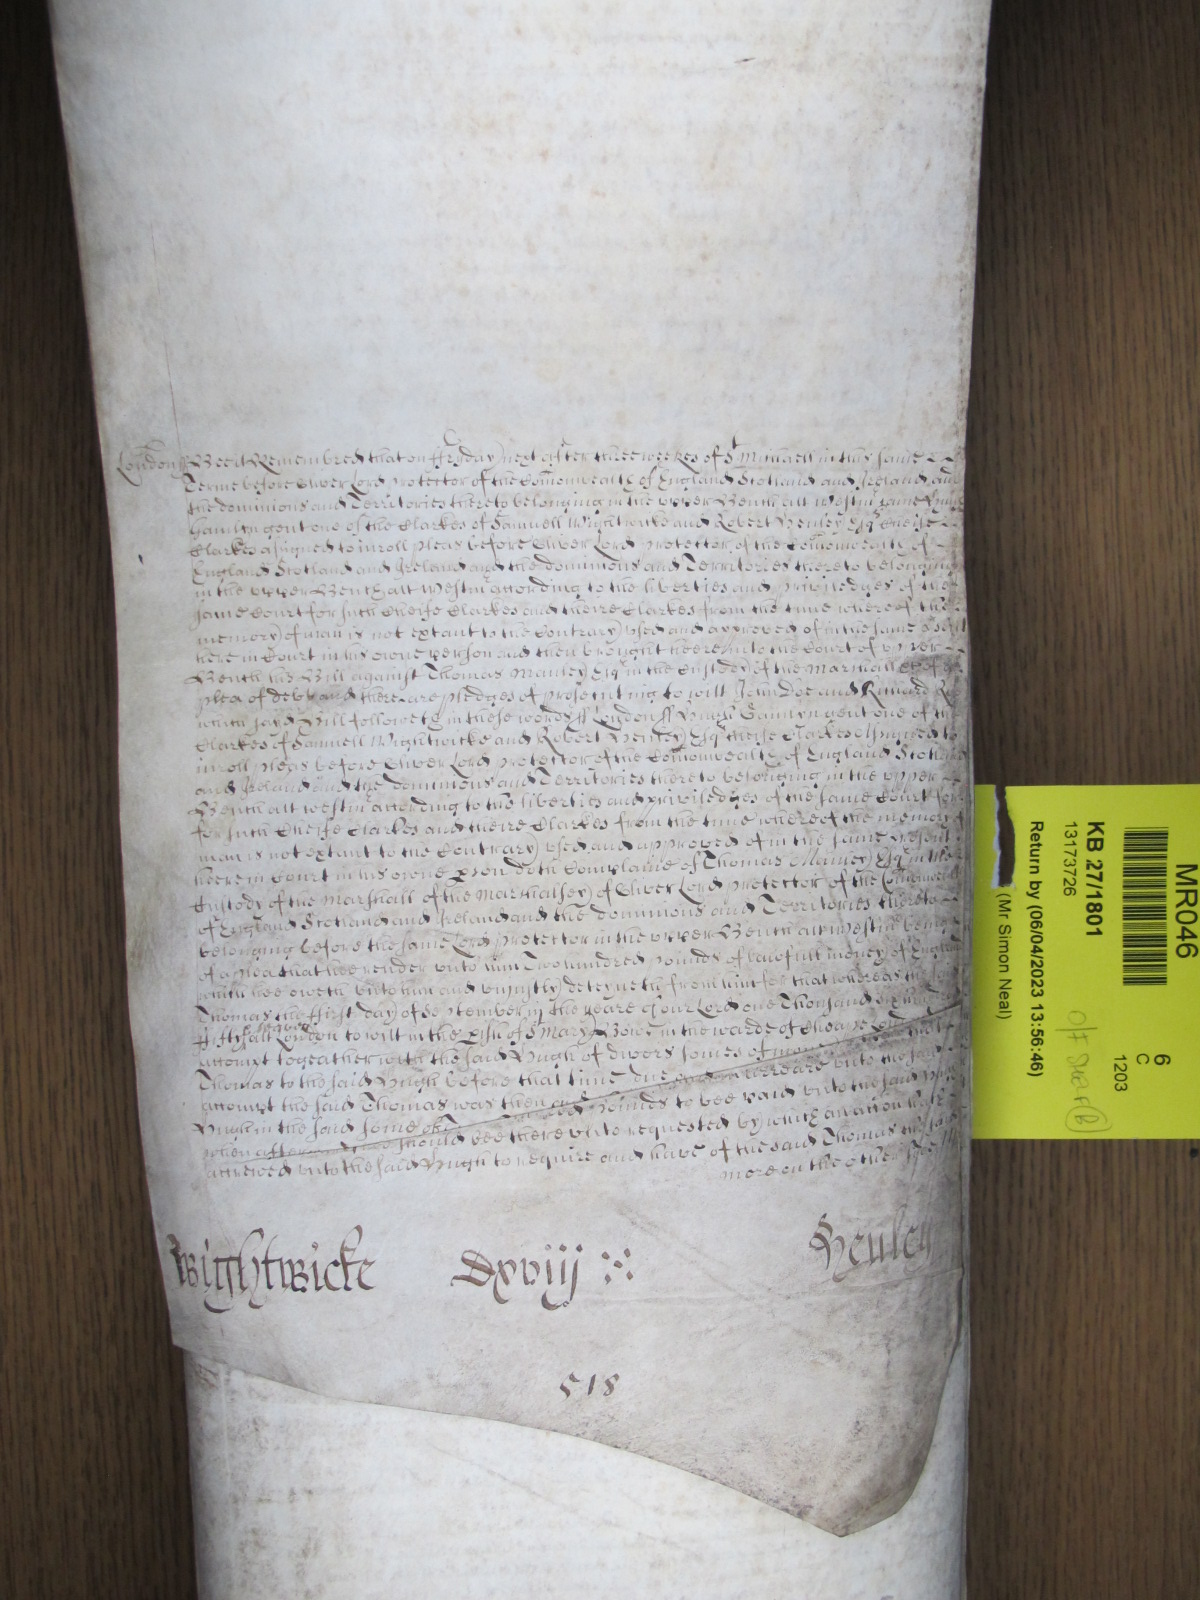 London ss Bee it Remembred that on fryday next after three weekes of St Michaell in this same
Terme before Oliver Lord protector of the Comonwealth of England Scotland and Ireland and
the dominions and Territories thereto belonging in the upper Bench att Westm came Hugh
Hamlyn gent one of the Clarkes of Samuell Wightwicke and Robert Henley Esqr cheife
Clarkes assigned to inroll pleas before Oliver Lord protector of the Comonwealth of
England Scotland and Ireland and the dominions and Territories thereto belonging
in the upper Bench att Westm according to the liberties and priviledges of the
same Court for such cheife Clarkes and theire Clarkes from the time whereof the
memory of man is not extant to the Contrary used and approved of in the same
here in Court in his owne person and then brought heere into the Court of upper
Bench his Bill against Thomas Manley Esqr in the Custody of the Marshall &c of a
plea of debt and there are pledges of prosecuting to witt John Doe and Richard Roe
which sayd Bill followeth in these words ss London ss Hugh Hamlyn gent one of the
Clarkes of Samuell Wightwicke and Robert Henley Esqr cheife Clarkes Assigned to
inroll pleas before Oliver Lord protector of the Comonwealth of England Scotland
and Ireland and the dominions and Territories thereto belonging in the upper
Bench att Westm according to the liberties and priviledges of the same Court for
for such Cheife Clarkes and theire Clarkes from the time whereof the memory of
man is not extant to the Contrary used and approved of in the same present
heere in Court in his owne pson doth Complaine of Thomas Manley Esqr in the
Custody of the Marshall of the Marshalsey of Oliver Lord protector of the Comonwealth
of England Scotland and Ireland and the dominions and Territories thereto
belonging before the same Lord protector in the upper Bench att Westm being
of a plea that hee render unto him Two hundred pounds of lawfull money of England
which hee oweth unto him and unjustly deteyneth from him for that whereas the said
Thomas the first day of September in the yeare of our Lord one Thousand six hundred
Fifty att London to witt in the pish of St Mary Bow in the warde of Cheape
accompt togeather with the said Hugh of divers somes of money
Thomas to the said Hugh before that time due and in arreare unto the said
accompt the said Thomas was then and
Hugh in the said some of pounds to bee paid unto the said Hugh
when afterwards hee should bee there unto requested by which an action hath
accrewed unto the said Hugh to require and have of the said Thomas the said
more on the other side
Wightwicke Dxviij Henley
518
MR046
6
C
1203
KB 27/1801
13173726
Return by (06/04/2023 13:56:46)
(Mr Simon Neal)